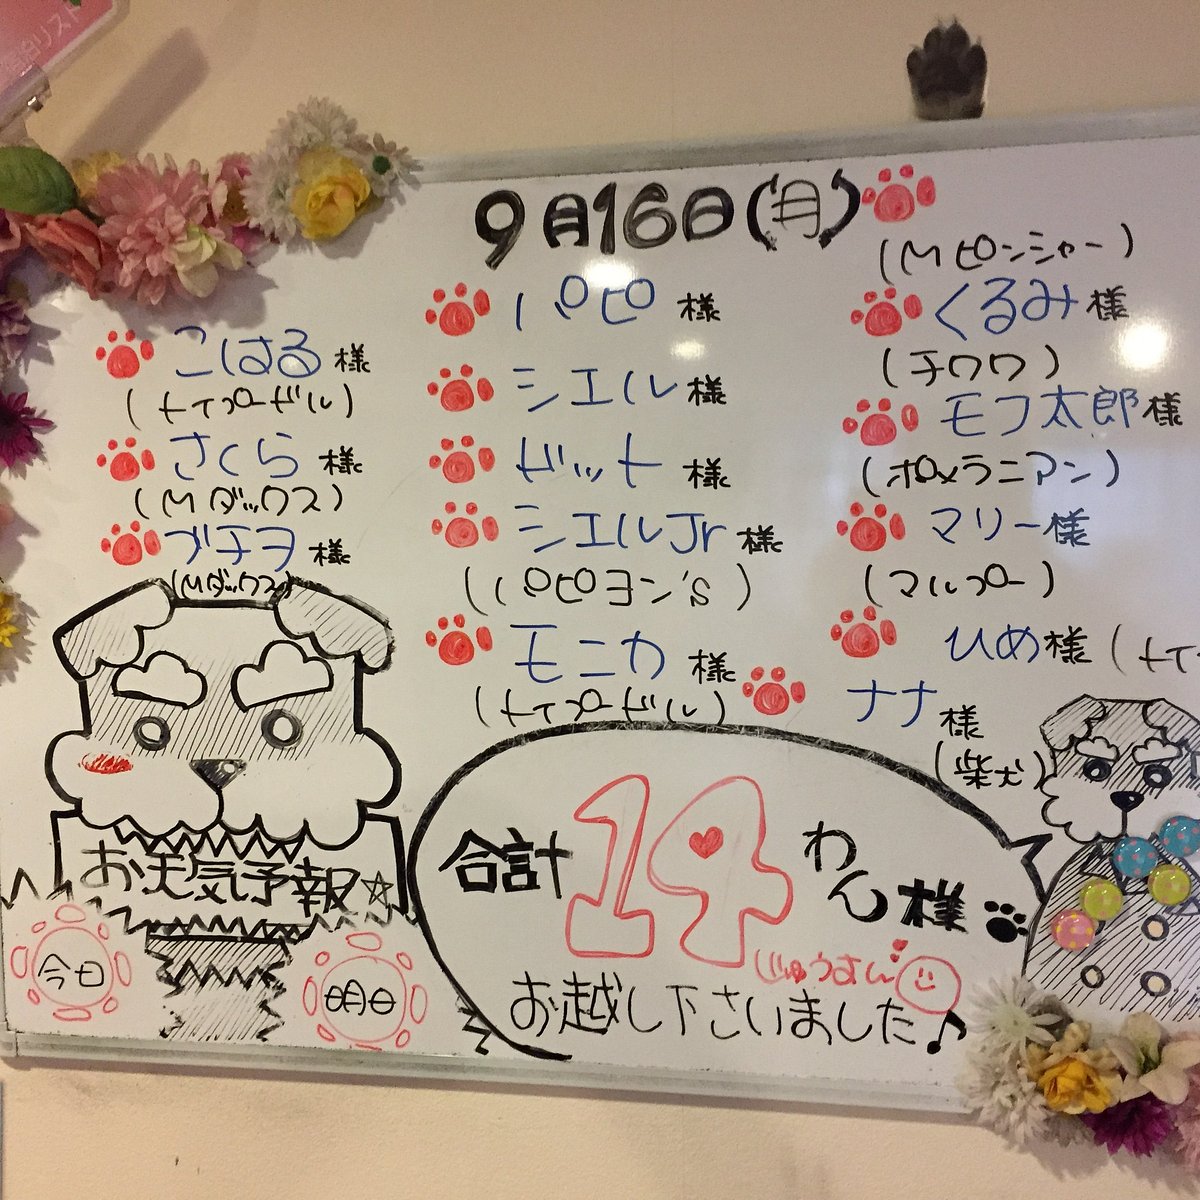 9月16日(月)
こはる様
(トイプードル)
さくら様
(Mダックス)
プチヲ様
(Mダックス)
パピ様
シエル様
ドット様
シエルJr様
(パピヨン'S)
モニカ様
(トイプードル)
(Mピンシャー)
くるみ様
(チワワ)
モフ太郎様
(ポメラニアン)
マリー様
(マルプー)
ひめ様(トイ
ナナ様
(柴犬)
合計14わん様
お越し下さいました♪
お天気予報☆
今日
明日